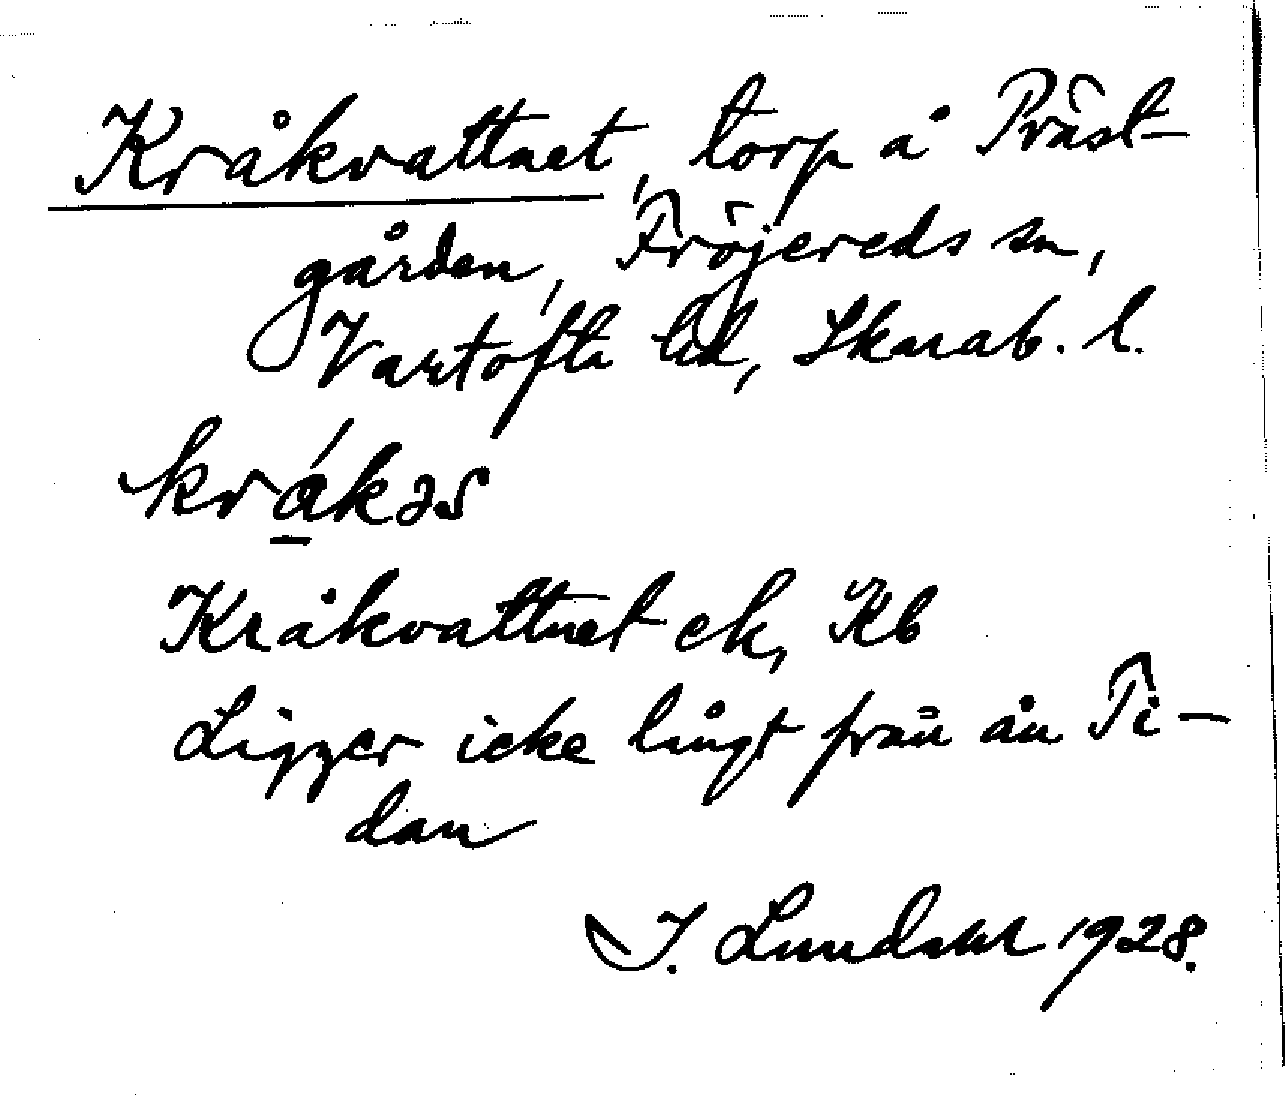 Kråkvattnet, torp å Präst-
gården, Fröjereds sn,
Vartofta hd, Skarab. l.
krá̱kəs
Kråkvattnet ek, Kb
Ligger icke långt från ån Ti-
dan
I. Lundahl 1928.